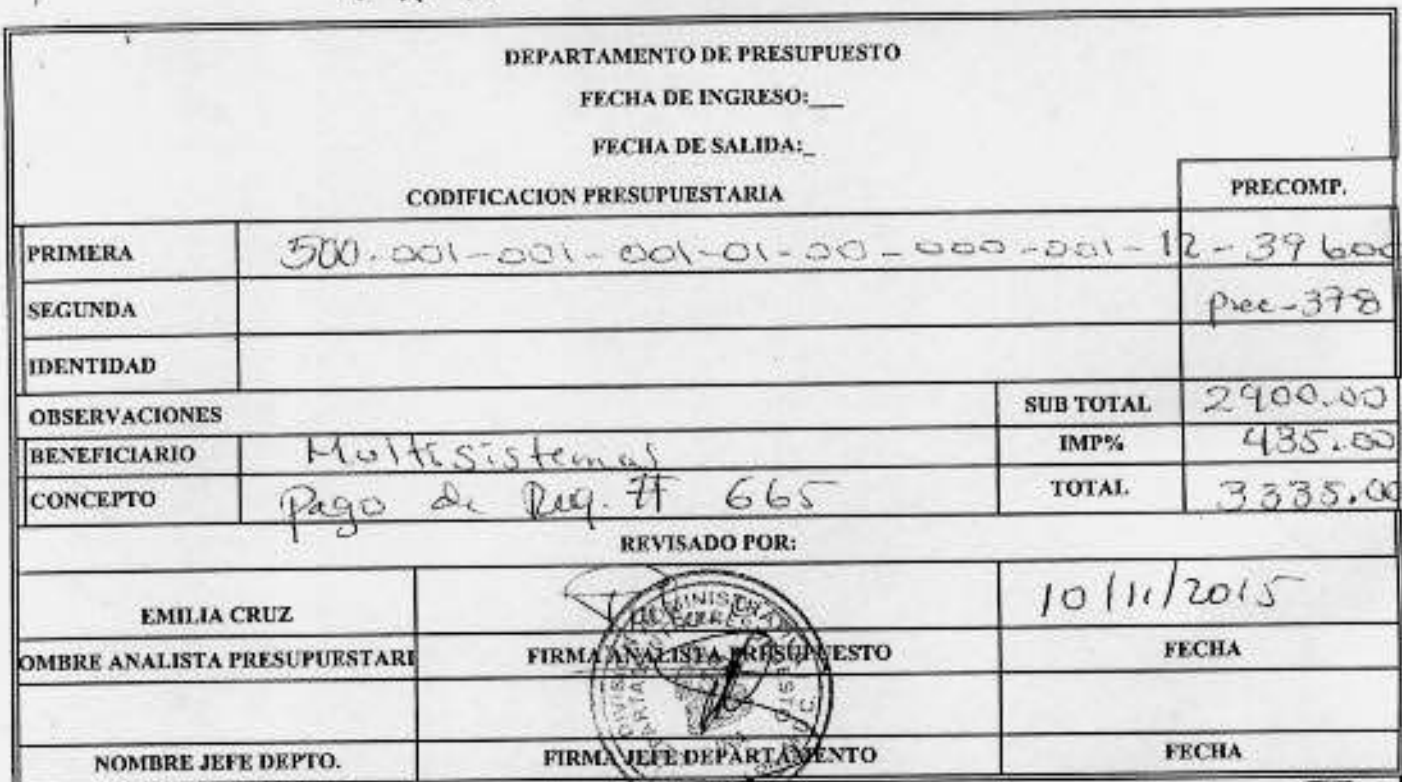 DEPARTAMENTO DE PRESUPUESTO
FECHA DE INGRESO:___
FECHA DE SALIDA:_
CODIFICACION PRESUPUESTARIA PRECOMP.
PRIMERA 500-001-001-001-01-00-000-001-12-39600
SEGUNDA prec-378
IDENTIDAD
OBSERVACIONES SUB TOTAL 2900.00
BENEFICIARIO Multisistemas IMP% 435.00
CONCEPTO Pago de Req. # 665 TOTAL 3335.00
REVISADO POR:
EMILIA CRUZ 10/11/2015
OMBRE ANALISTA PRESUPUESTARI FIRMA ANALISTA PRESUPUESTO FECHA
NOMBRE JEFE DEPTO. FIRMA JEFE DEPARTAMENTO FECHA